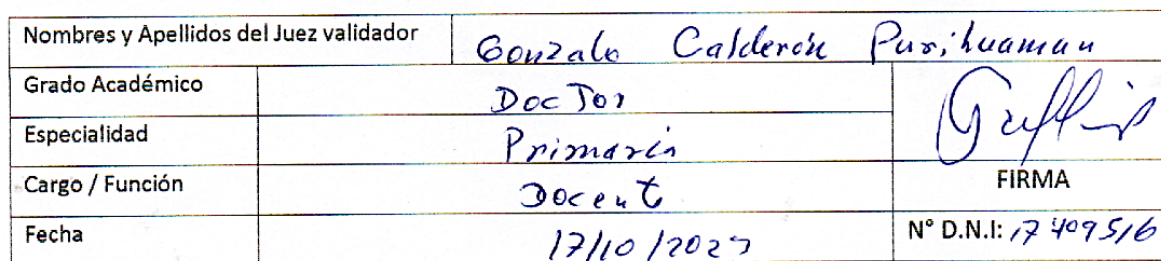 Nombres y Apellidos del Juez validador Gonzalo Calderón Purihuaman
Grado Académico Doctor
Especialidad Primaria
Cargo / Función Docente
FIRMA
Fecha 17/10/2023
N° D.N.I: 17409516